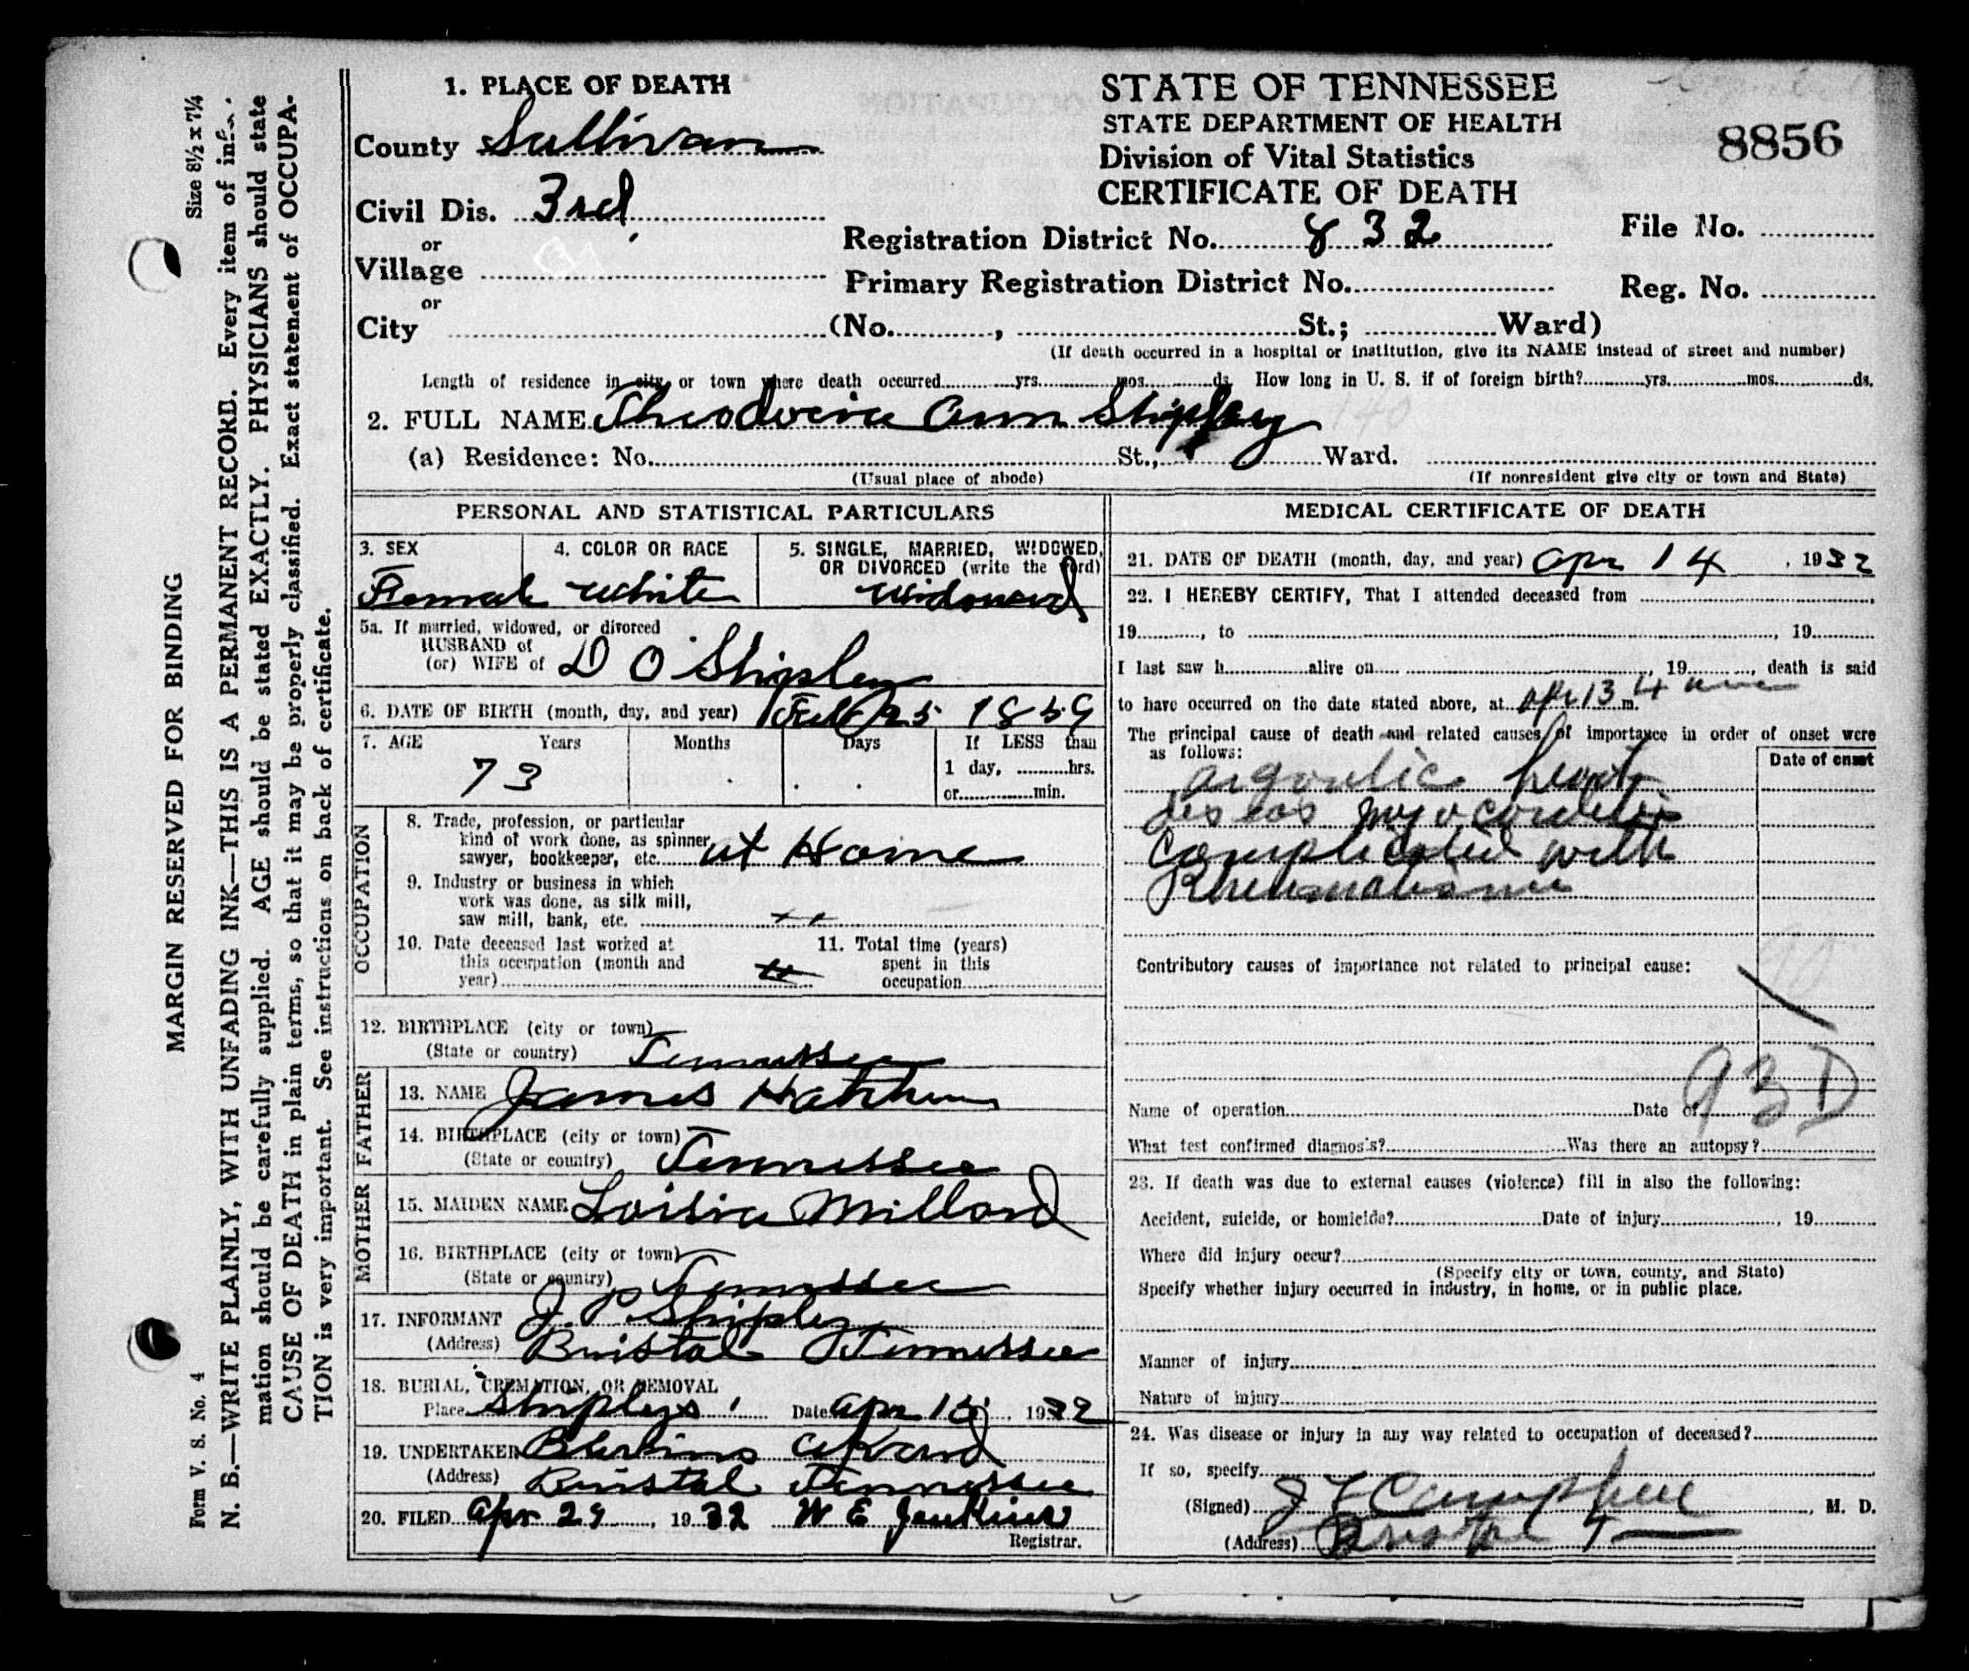 1. PLACE OF DEATH
County Sullivan
Civil Dis. 3rd
or
Village
or
City (No. , St.; Ward)
STATE OF TENNESSEE
STATE DEPARTMENT OF HEALTH
Division of Vital Statistics
CERTIFICATE OF DEATH
8856
Registration District No. 832
File No.
Primary Registration District No.
Reg. No.
(If death occurred in a hospital or institution, give its NAME instead of street and number)
Length of residence in city or town where death occurred yrs. mos. ds. How long in U. S. if of foreign birth? yrs. mos. ds.
2. FULL NAME Ann Shipley
140
(a) Residence: No. St., Ward.
(Usual place of abode) (If nonresident give city or town and State)
PERSONAL AND STATISTICAL PARTICULARS
3. SEX
Female
4. COLOR OR RACE
White
5. SINGLE, MARRIED, WIDOWED, OR DIVORCED (write the word)
Widowed
5a. If married, widowed, or divorced
HUSBAND of
(or) WIFE of D O Shipley
6. DATE OF BIRTH (month, day, and year) Feb 25 1859
7. AGE Years Months Days If LESS than
73
1 day, hrs.
or min.
OCCUPATION
8. Trade, profession, or particular
kind of work done, as spinner,
sawyer, bookkeeper, etc. at Home
9. Industry or business in which
work was done, as silk mill,
saw mill, bank, etc.
10. Date deceased last worked at
this occupation (month and
year)
11. Total time (years)
spent in this
occupation
12. BIRTHPLACE (city or town)
(State or country) Tennessee
FATHER
13. NAME James
14. BIRTHPLACE (city or town)
(State or country) Tennessee
MOTHER
15. MAIDEN NAME Millard
16. BIRTHPLACE (city or town)
(State or country) Tennessee
17. INFORMANT J. P. Shipley
(Address) Bristol Tennessee
18. BURIAL, CREMATION, OR REMOVAL
Place Shipleys Date Apr 15, 1932
19. UNDERTAKER
(Address) Bristol Tennessee
20. FILED Apr 29, 1932 W E Jenkins
Registrar.
MEDICAL CERTIFICATE OF DEATH
21. DATE OF DEATH (month, day, and year) Apr 14, 1932
22. I HEREBY CERTIFY, That I attended deceased from
19 , to , 19
I last saw h alive on , 19 , death is said
to have occurred on the date stated above, at Apr 13 4 m.
The principal cause of death and related causes of importance in order of onset were
as follows:
Date of onset
heart
complicated with
Rheumatism
Contributory causes of importance not related to principal cause:
93D
Name of operation Date of
What test confirmed diagnosis? Was there an autopsy?
23. If death was due to external causes (violence) fill in also the following:
Accident, suicide, or homicide? Date of injury , 19
Where did injury occur?
(Specify city or town, county, and State)
Specify whether injury occurred in industry, in home, or in public place.
Manner of injury
Nature of injury
24. Was disease or injury in any way related to occupation of deceased?
If so, specify
(Signed) J F Campbell, M. D.
(Address)
MARGIN RESERVED FOR BINDING
Size 8½ x 7¼
Form V. S. No. 4
N. B.—WRITE PLAINLY, WITH UNFADING INK—THIS IS A PERMANENT RECORD. Every item of
mation should be carefully supplied. AGE should be stated EXACTLY. PHYSICIANS should state
CAUSE OF DEATH in plain terms, so that it may be properly classified. Exact statement of OCCUPA-
TION is very important. See instructions on back of certificate.